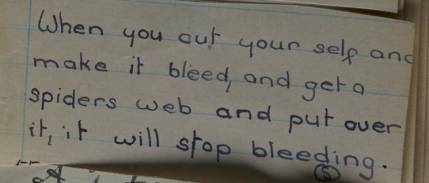 When you cut your self and
make it bleed, and get a
spiders web and put over
it, it will stop bleeding.
5